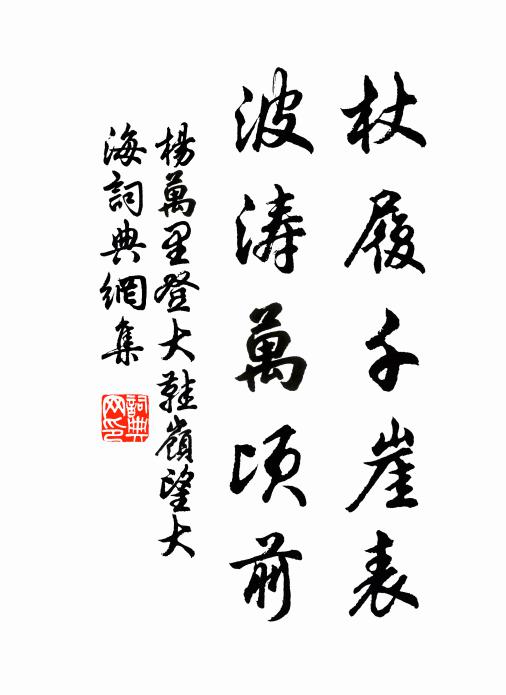 杖履千崖表
波涛萬頃前
楊萬里登大鞋嶺望大
海詞典網集
詞典
网印